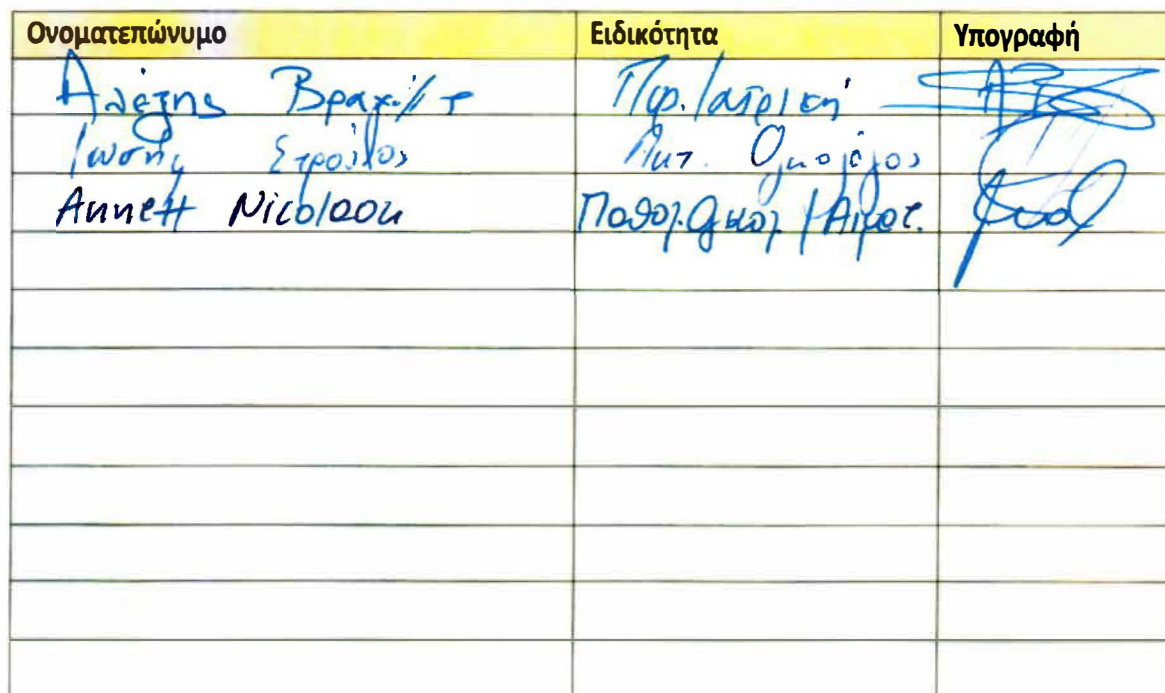 Ονοματεπώνυμο Ειδικότητα Υπογραφή
Αλέξης Πυρ. Ιατρική
Ιωσήφ Ακτ. Ογκολόγος
Annett Nicolaou Παθολ. Ογκολ. / Αιματ.